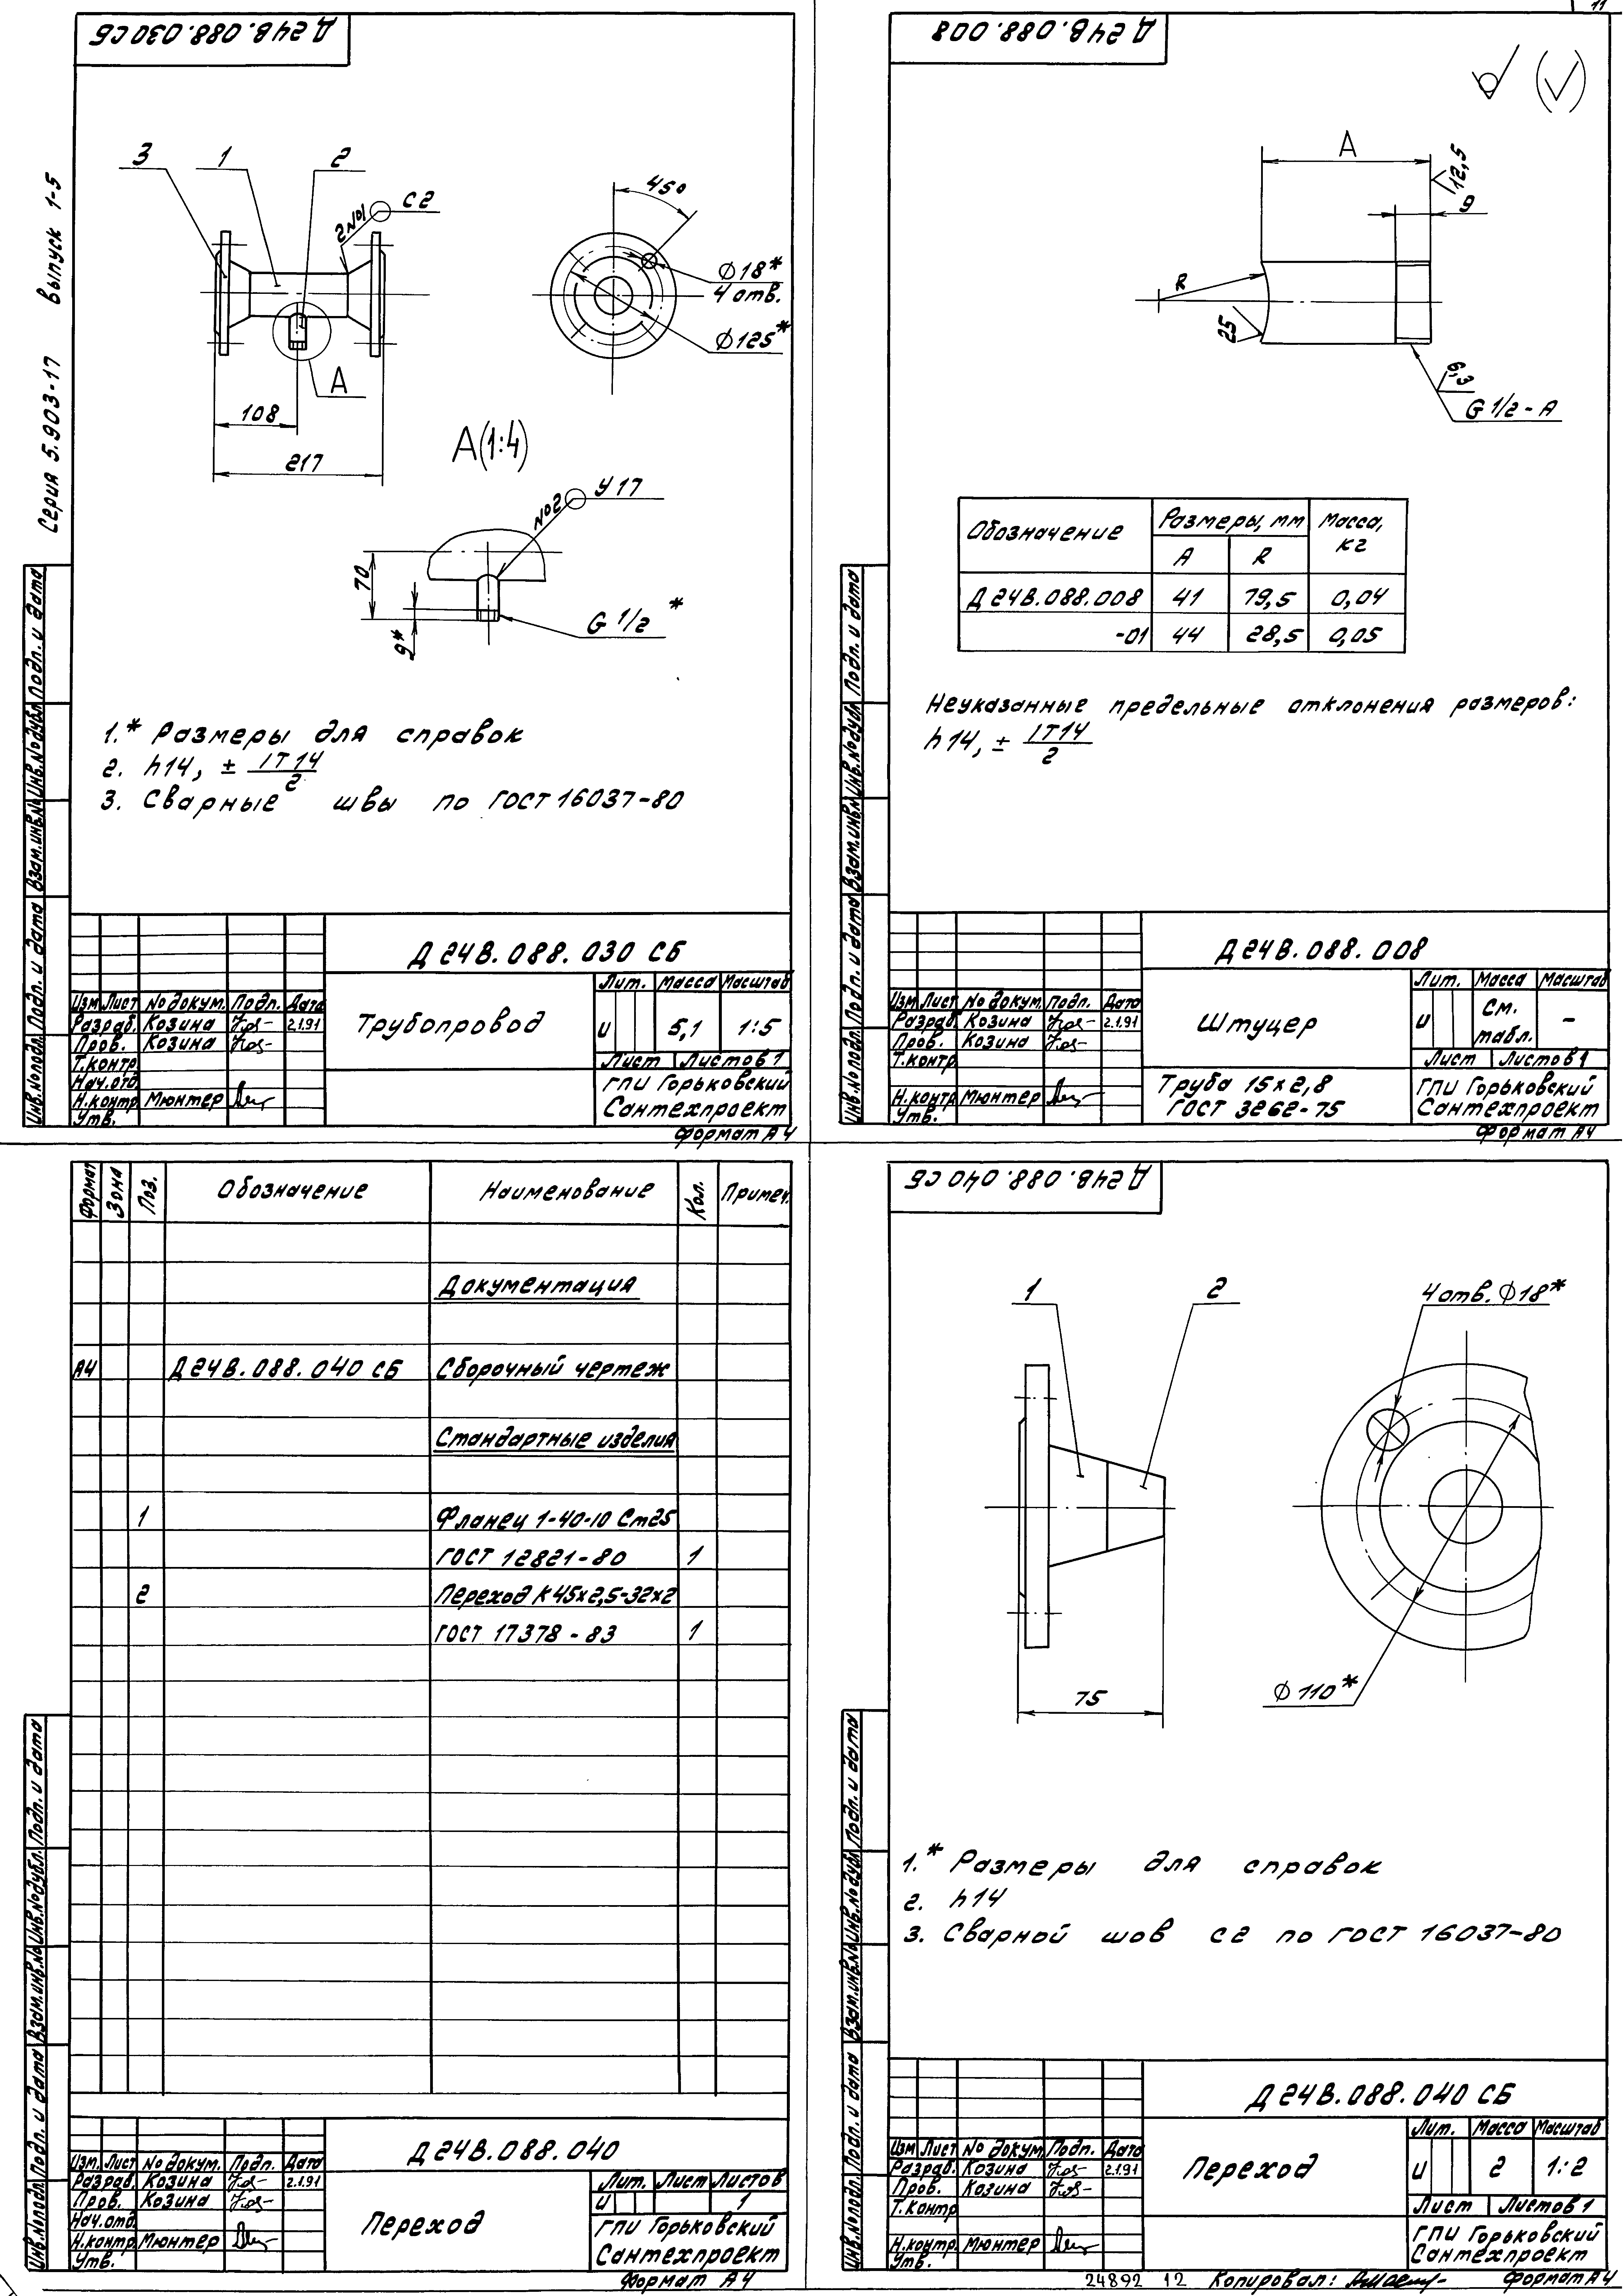 Серия 5.903-17 выпуск 1-5
Д24В.088.030СБ
3
1
2
2 №1
С2
45°
Ф18*
4 отв.
Ф125*
А
108
217
А(1:4)
№2
У17
70
9*
G 1/2 *
1.* Размеры для справок
2. h14, ± IT14/2
3. Сварные швы по ГОСТ 16037-80
Д24В.088.030 СБ
Лит. Масса Масштаб
Изм Лист № докум. Подп. Дата
Разраб. Козина 2.1.91
Трубопровод
и 5,1 1:5
Пров. Козина
Т.контр
Лист Листов 1
Нач.отд
ГПИ Горьковский
Н.контр Мюнтер
Сантехпроект
Утв.
Формат А4
Инв.№ подл. Подп. и дата Взам.инв.№ Инв.№ дубл. Подп. и дата
11
Д24В.088.008
А
12,5
9
R
25
6,3
G 1/2 - А
Обозначение Размеры, мм Масса, кг
А R
Д24В.088.008 41 79,5 0,04
-01 44 28,5 0,05
Неуказанные предельные отклонения размеров:
h14, ± IT14/2
Д24В.088.008
Лит. Масса Масштаб
Изм Лист № докум. Подп. Дата
Разраб. Козина 2.1.91
Штуцер
и См. табл. –
Пров. Козина
Т.контр
Лист Листов 1
Труба 15х2,8
ГОСТ 3262-75
ГПИ Горьковский
Н.контр Мюнтер
Сантехпроект
Утв.
Формат А4
Инв.№ подл. Подп. и дата Взам.инв.№ Инв.№ дубл. Подп. и дата
Формат Зона Поз. Обозначение Наименование Кол. Примеч.
Документация
А4 Д24В.088.040 СБ Сборочный чертеж
Стандартные изделия
1 Фланец 1-40-10 Ст25
ГОСТ 12821-80 1
2 Переход К 45х2,5-32х2
ГОСТ 17378-83 1
Д24В.088.040
Изм. Лист № докум. Подп. Дата
Разраб. Козина 2.1.91
Лит. Лист Листов
Пров. Козина
и 1
Нач.отд.
Переход
ГПИ Горьковский
Н.контр. Мюнтер
Сантехпроект
Утв.
Формат А4
Инв.№ подл. Подп. и дата Взам.инв.№ Инв.№ дубл. Подп. и дата
Д24В.088.040 СБ
1
2
4 отв. Ф18*
75
Ф110*
1.* Размеры для справок
2. h14
3. Сварной шов С2 по ГОСТ 16037-80
Д24В.088.040 СБ
Лит. Масса Масштаб
Изм Лист № докум. Подп. Дата
Разраб. Козина 2.1.91
Переход
и 2 1:2
Пров. Козина
Т.контр
Лист Листов 1
ГПИ Горьковский
Н.контр. Мюнтер
Сантехпроект
Утв.
Инв.№ подл. Подп. и дата Взам.инв.№ Инв.№ дубл. Подп. и дата
24892 12 Копировал: Формат А4